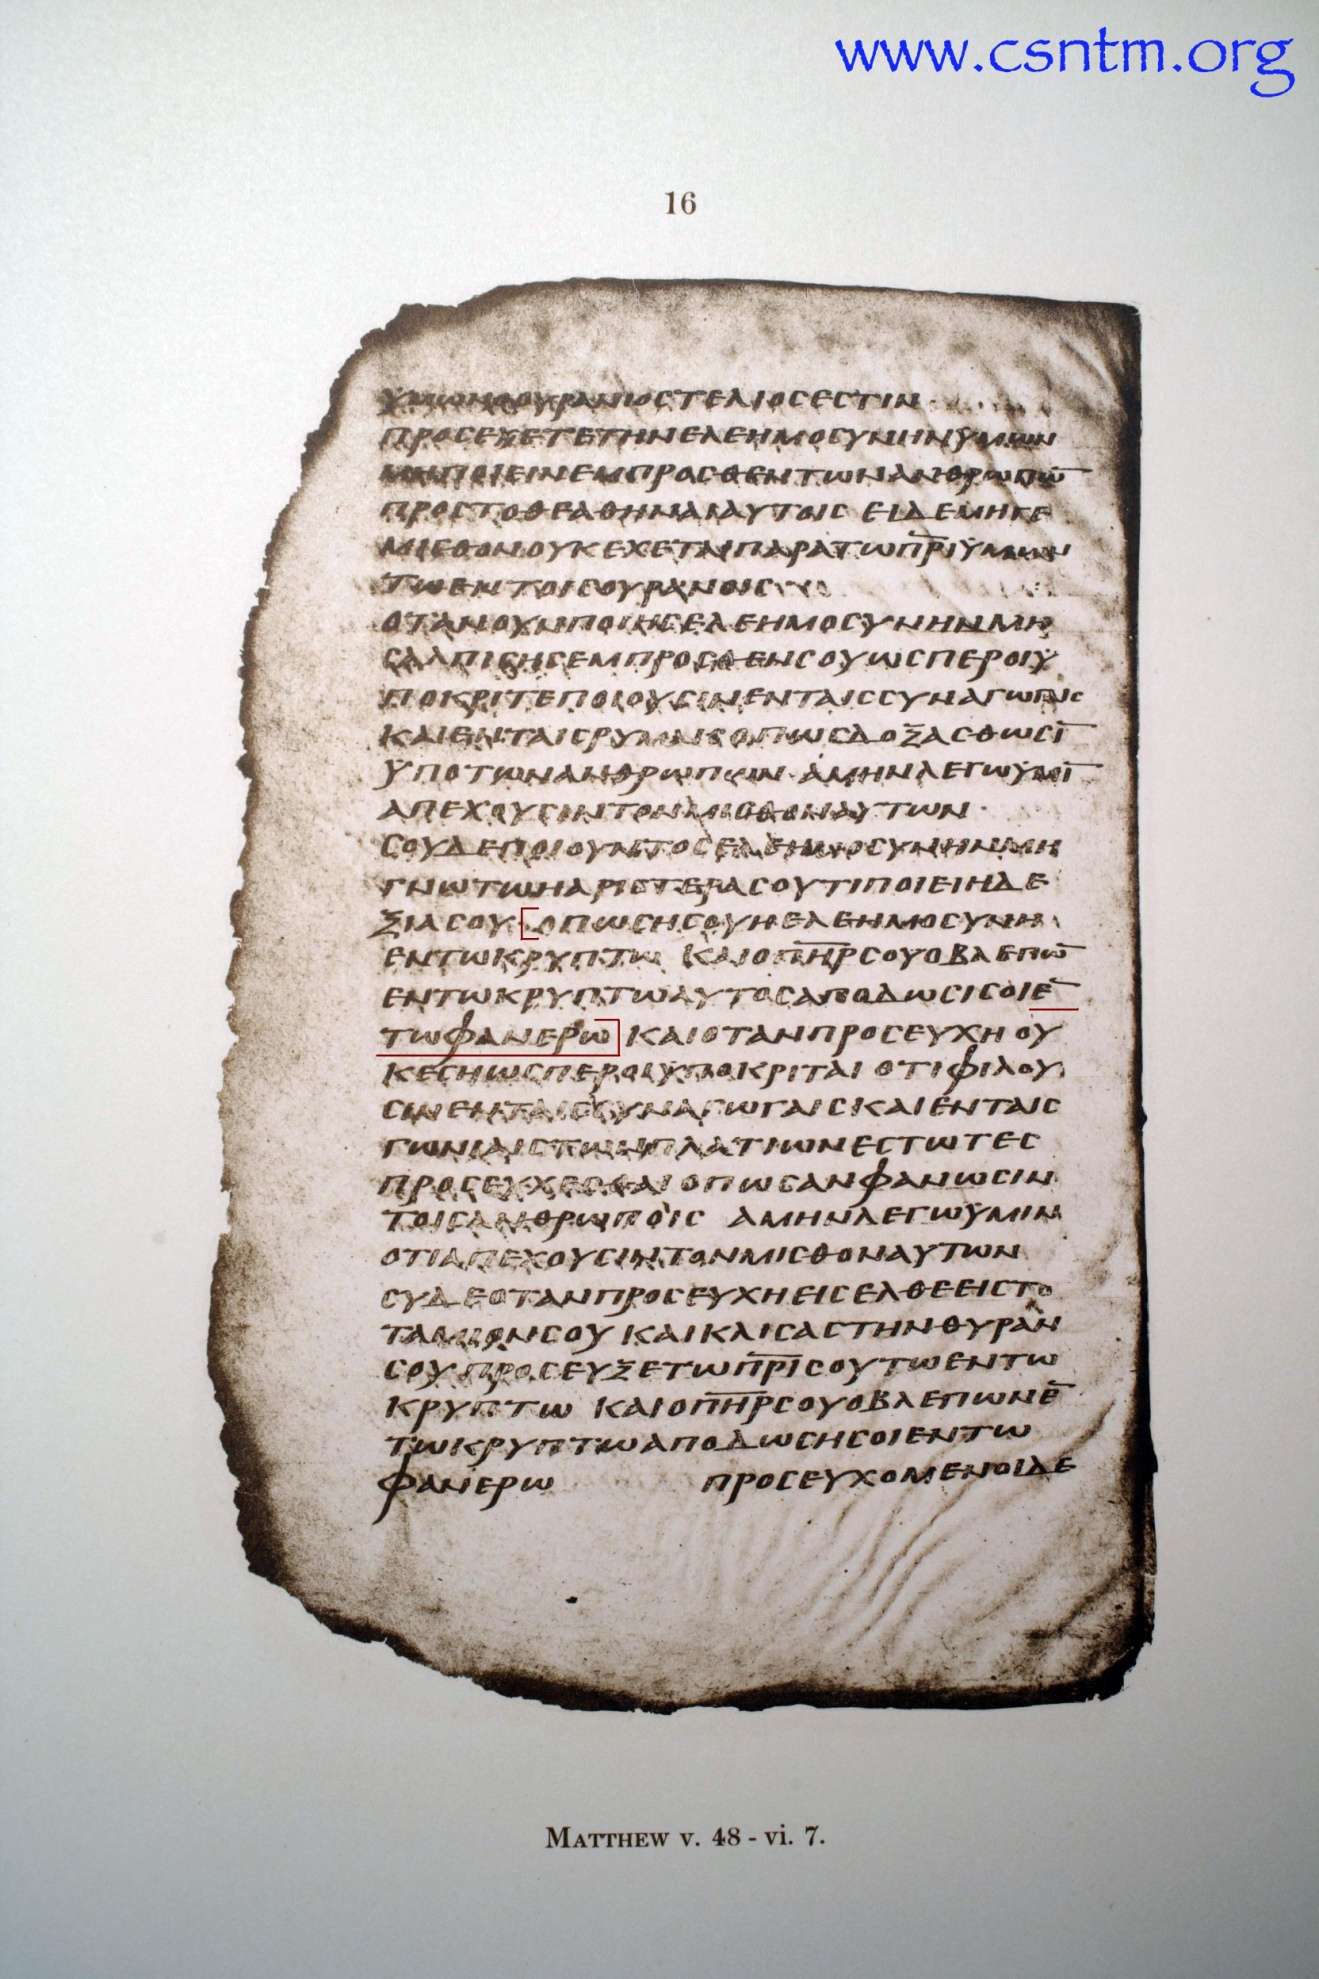 www.csntm.org
16
ΫΜΩΝΟΟΥΡΑΝΙΟΣΤΕΛΙΟϹΕϹΤΙΝ
ΠΡΟϹΕΧΕΤΕΤΗΝΕΛΕΗΜΟϹΥΝΗΝΫΜΩΝ
ΜΗΠΟΙΕΙΝΕΜΠΡΟϹΘΕΝΤΩΝΑΝΘΡΩΠΩ̅
ΠΡΟϹΤΟΘΕΑΘΗΝΑΙΑΥΤΟΙϹ ΕΙΔΕΜΗΓΕ
ΜΙϹΘΟΝΟΥΚΕΧΕΤΑΙΠΑΡΑΤΩΠ̅Ρ̅Ι̅ΫΜΩΝ
ΤΩΕΝΤΟΙϹΟΥΡΑΝΟΙϹ
ΟΤΑΝΟΥΝΠΟΙΗϹΕΛΕΗΜΟϹΥΝΗΝΜΗ
ϹΑΛΠΙϹΗϹΕΜΠΡΟϹΘΕΝϹΟΥΩϹΠΕΡΟΙΫ
ΠΟΚΡΙΤΕΠΟΙΟΥϹΙΝΕΝΤΑΙϹϹΥΝΑΓΩΓΑΙϹ
ΚΑΙΕΝΤΑΙϹΡΥΜΑΙϹΟΠΩϹΔΟΞΑϹΘΩϹΙ̅
ΫΠΟΤΩΝΑΝΘΡΩΠΩΝ·ΑΜΗΝΛΕΓΩΫΜΙ̅
ΑΠΕΧΟΥϹΙΝΤΟΝΜΙϹΘΟΝΑΥΤΩΝ·
ϹΟΥΔΕΠΟΙΟΥΝΤΟϹΕΛΕΗΜΟϹΥΝΗΝΜΗ
ΓΝΩΤΩΗΑΡΙϹΤΕΡΑϹΟΥΤΙΠΟΙΕΙΗΔΕ
ΞΙΑϹΟΥ·ΟΠΩϹΗϹΟΥΗΕΛΕΗΜΟϹΥΝΗ
ΕΝΤΩΚΡΥΠΤΩ ΚΑΙΟΠ̅Η̅Ρ̅ϹΟΥΟΒΛΕΠΩ̅
ΕΝΤΩΚΡΥΠΤΩΑΥΤΟϹΑΠΟΔΩϹΙϹΟΙΕ̅
ΤΩΦΑΝΕΡΩ ΚΑΙΟΤΑΝΠΡΟϹΕΥΧΗΟΥ
ΚΕϹΗΩϹΠΕΡΟΙΫΠΟΚΡΙΤΑΙ ΟΤΙΦΙΛΟΥ
ϹΙΝΕΝΤΑΙϹϹΥΝΑΓΩΓΑΙϹΚΑΙΕΝΤΑΙϹ
ΓΩΝΙΑΙϹΤΩΝΠΛΑΤΙΩΝΕϹΤΩΤΕϹ
ΠΡΟϹΕΥΧΕϹΘΑΙ ΟΠΩϹΑΝΦΑΝΩϹΙΝ
ΤΟΙϹΑΝΘΡΩΠΟΙϹ ΑΜΗΝΛΕΓΩΫΜΙΝ
ΟΤΙΑΠΕΧΟΥϹΙΝΤΟΝΜΙϹΘΟΝΑΥΤΩΝ
ϹΥΔΕΟΤΑΝΠΡΟϹΕΥΧΗΕΙϹΕΛΘΕΕΙϹΤΟ
ΤΑΜΙΟΝϹΟΥ ΚΑΙΚΛΙϹΑϹΤΗΝΘΥΡΑΝ
ϹΟΥΠΡΟϹΕΥΞΕΤΩΠ̅Ρ̅Ι̅ϹΟΥΤΩΕΝΤΩ
ΚΡΥΠΤΩ ΚΑΙΟΠ̅Η̅Ρ̅ϹΟΥΟΒΛΕΠΩΝΕ̅
ΤΩΚΡΥΠΤΩΑΠΟΔΩϹΗϹΟΙΕΝΤΩ
ΦΑΝΕΡΩ ΠΡΟϹΕΥΧΟΜΕΝΟΙΔΕ
MATTHEW v. 48 - vi. 7.